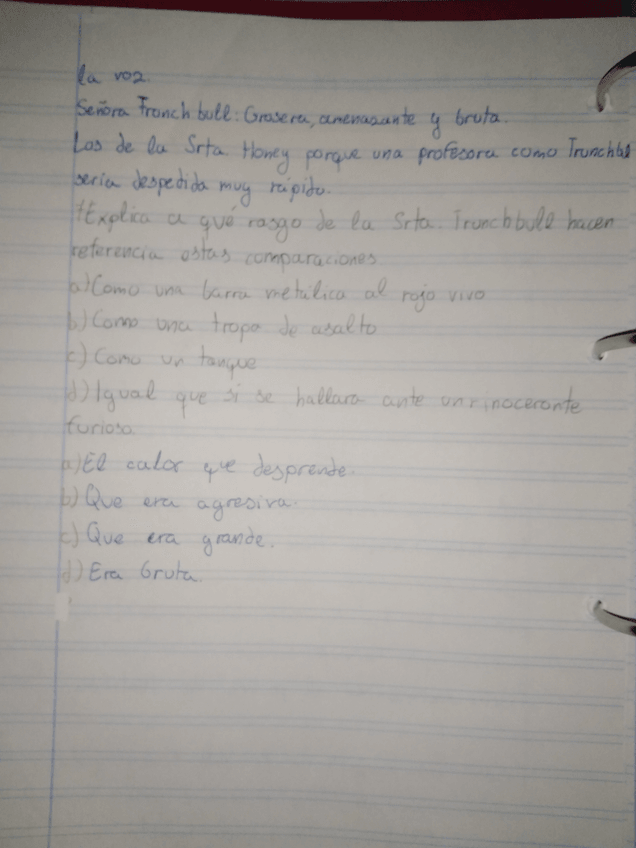 la voz.
Señora Tronchbull: Grosera, amenazante y bruta.
Los de la Srta. Honey porque una profesora como Trunchbul
sería despedida muy rápido.
Explica a qué rasgo de la Srta. Trunchbull hacen
referencia estas comparaciones
a) Como una barra metálica al rojo vivo
b) Como una tropa de asalto
c) Como un tanque
d) Igual que si se hallara ante un rinoceronte
furioso.
a) El calor que desprende.
b) Que era agresiva.
c) Que era grande.
d) Era bruta.